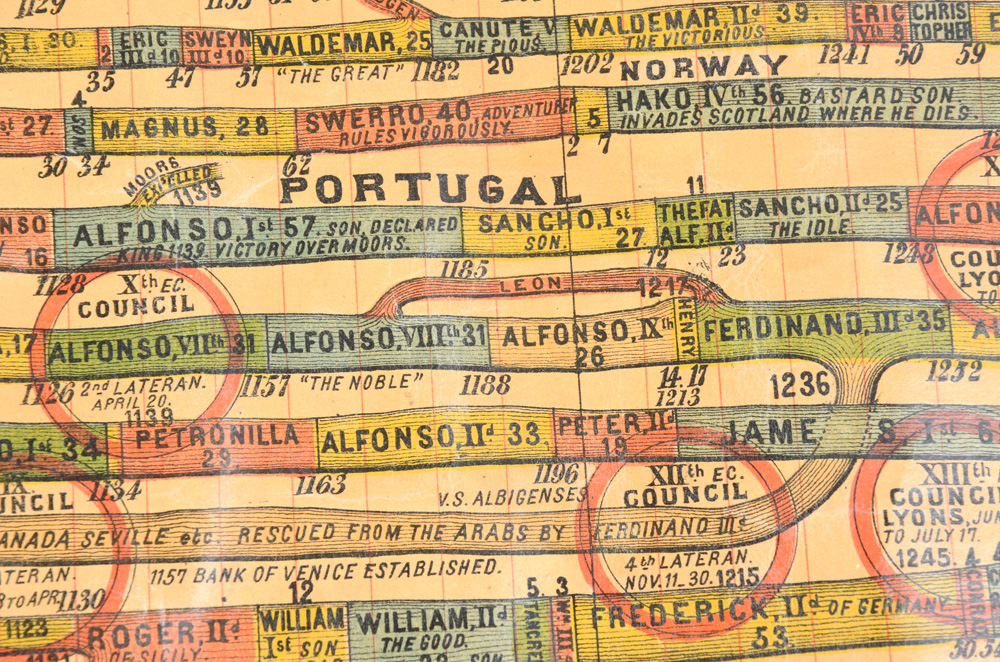 1129
GEN
S, I. 30.
2
ERIC
IIId 10
SWEYN
IIId 10.
WALDEMAR, 25
CANUTE V
THE PIOUS.
WALDEMAR, IId 39.
THE VICTORIOUS
ERIC
IVth 9
CHRIS
TOPHER
35
47
57
"THE GREAT"
1182
20
1202
NORWAY
1241
50
59
st 27
4
MAGNUS, 28.
SWERRO, 40, ADVENTURER
RULES VIGOROUSLY.
5
HAKO, IVth 56. BASTARD SON
INVADES SCOTLAND WHERE HE DIES.
30
34
62
2
7
MOORS
EXPELLED
1139
PORTUGAL
11
16
ALFONSO, Ist 57. SON, DECLARED
KING 1139. VICTORY OVER MOORS.
SANCHO, Ist
SON. 27
THE FAT
ALF, IId
SANCHO, IId 25
THE IDLE.
ALFON
1128
1185
12
23
1248
Xth EC.
COUNCIL
LEON
1217
COU
LYO
TO
A, 17
ALFONSO, VIIth 31
ALFONSO, VIIIth 31
ALFONSO, IXth
26
HENRY
FERDINAND, IIId 35
1126
2nd LATERAN.
APRIL 20.
1139
1157
"THE NOBLE"
1188
14.17
1213
1236
1252
O, Ist 34
PETRONILLA
29
ALFONSO, IId 33.
PETER, IId
19
JAMES, Ist 6
IX
COUNCIL
1134
1163
1196
V.S. ALBIGENSES
XIIth EC.
COUNCIL
XIIIth
COUNCIL
LYONS, JUN
TO JULY 17.
1245.
ANADA SEVILLE etc. RESCUED FROM THE ARABS BY FERDINAND IIId
4th LATERAN.
NOV. 11-30. 1215
TERAN.
8 TO APR.
1130
1157 BANK OF VENICE ESTABLISHED.
12
5.
3
4
4
1123
ROGER, IId
OF SICILY.
WILLIAM
Ist SON
WILLIAM, IId
THE GOOD.
TANCRE
FREDERICK, IId OF GERMANY
53.
CONRAD
50.54